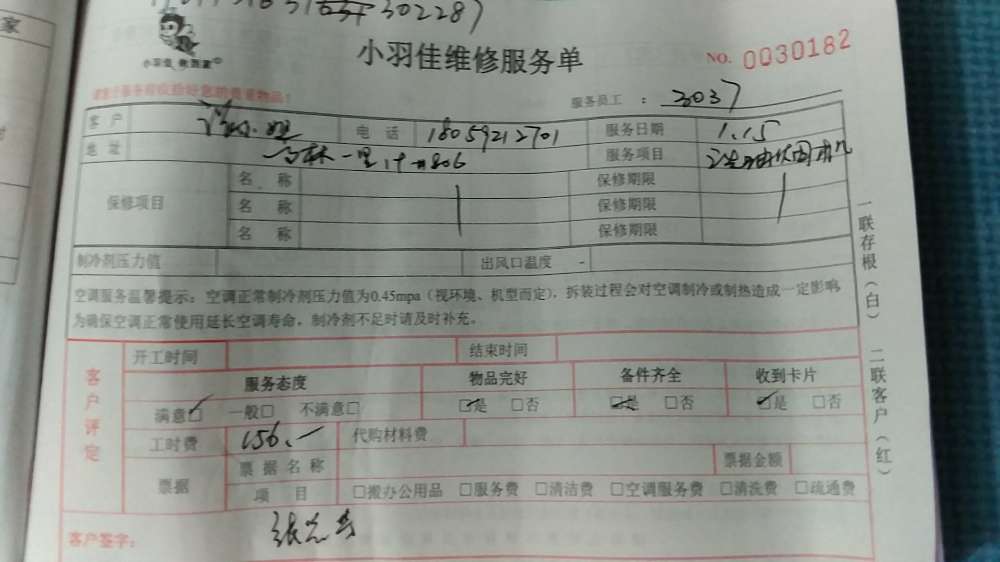 302287
小羽佳维修服务单
NO. 0030182
小羽佳
服务员工 : 3037
客户 电话 18059212701 服务日期 1.15
地址 一里 806 服务项目
保修项目 名称 保修期限
名称 保修期限
名称 保修期限
制冷剂压力值 出风口温度 -
空调服务温馨提示：空调正常制冷剂压力值为0.45mpa（视环境、机型而定），拆装过程会对空调制冷或制热造成一定影响，
为确保空调正常使用延长空调寿命，制冷剂不足时请及时补充。
客户评定
开工时间 结束时间
服务态度 物品完好 备件齐全 收到卡片
满意☑ 一般□ 不满意□ ☑是 □否 ☑是 □否 ☑是 □否
工时费 156.- 代购材料费
票据 票据名称 票据金额
项目 □搬办公用品 □服务费 □清洁费 □空调服务费 □清洗费 □疏通费
客户签字：
一联存根（白） 二联客户（红）
家